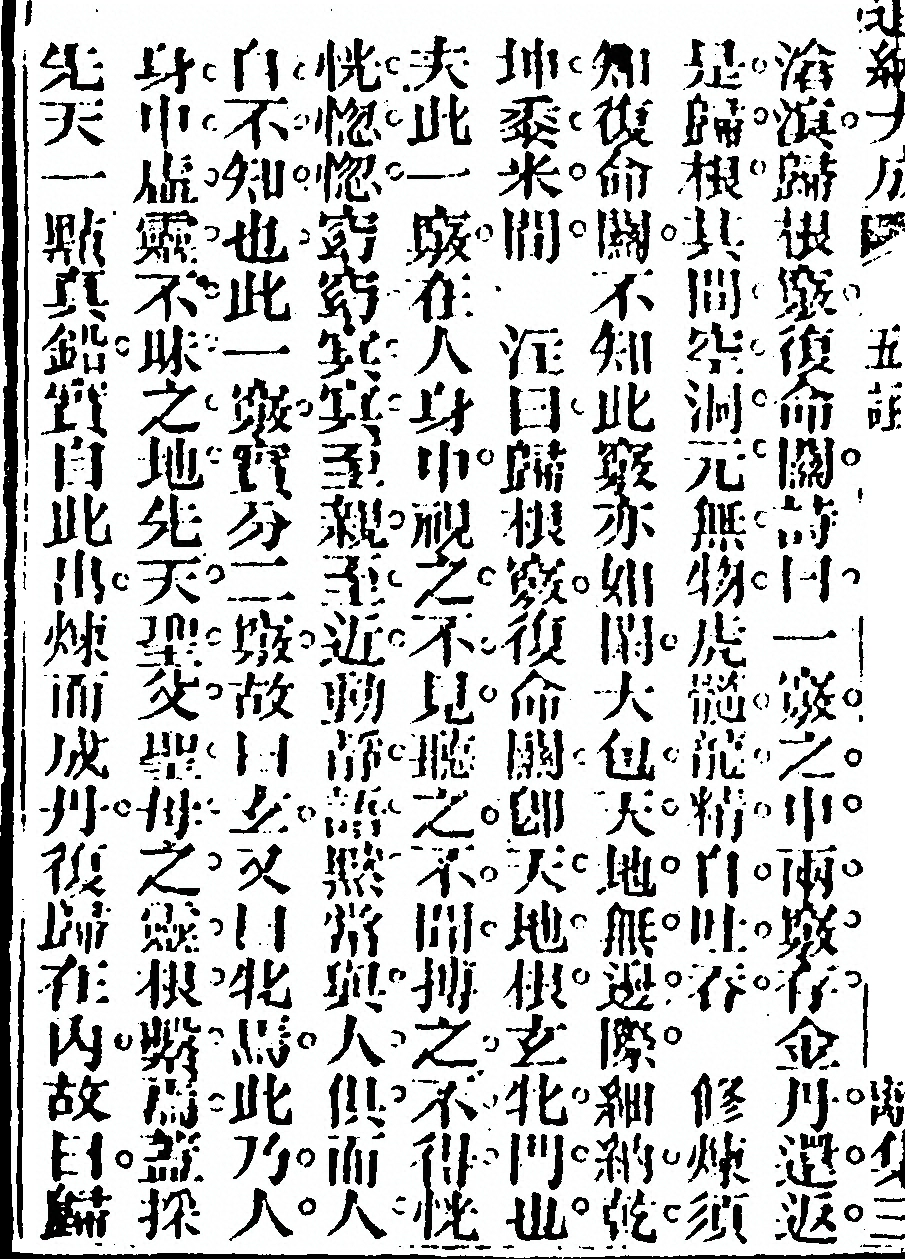 大成 五註 集三
滄溟歸根竅復命關詩曰一竅之中兩竅存金丹還返
是歸根其間空洞元無物虎髓龍精自吐吞 修煉須
知復命關不知此竅亦如閑大包天地無邊際細納乾
坤黍米間 注曰歸根竅復命關卽天地根玄牝門也
夫此一竅在人身中視之不見聽之不聞摶之不得恍
恍惚惚窈窈冥冥至親至近動靜語默常與人俱而人
自不知也此一竅實分二竅故曰玄又曰牝焉此乃人
身中虛靈不昧之地先天聖父聖母之靈根繫焉蓋採
先天一點真鉛實自此出煉而成丹復歸在內故曰歸